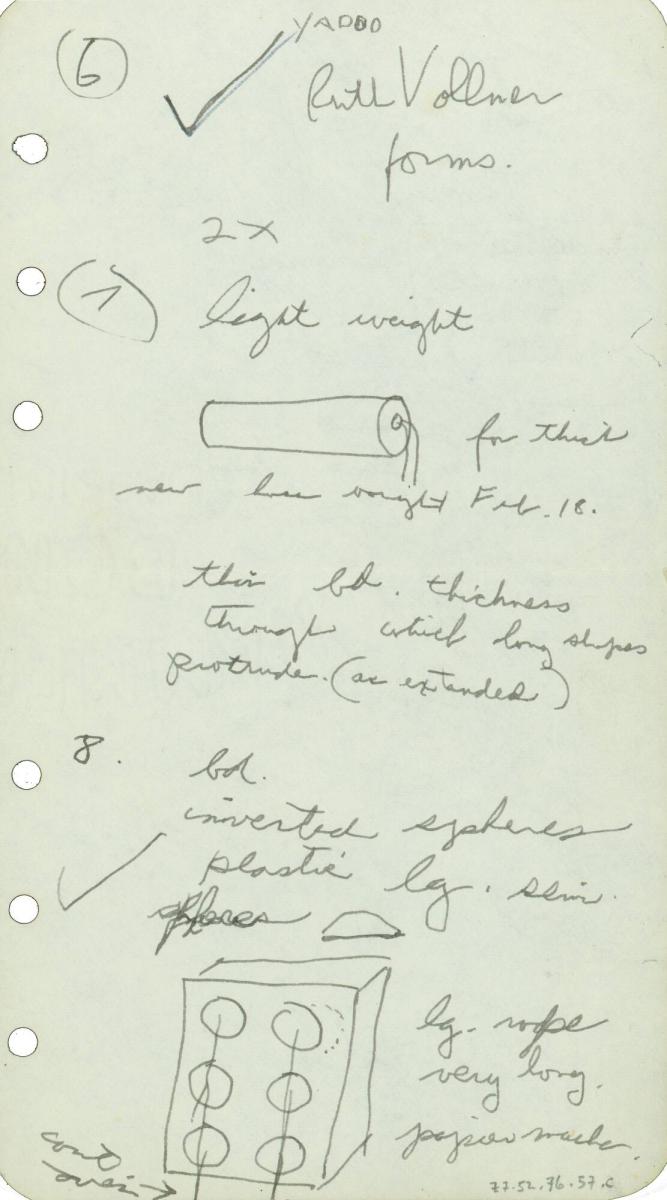 YADDO
6
Ruth Vollmer
forms.
2x
7
light weight
for this
new bought Feb. 18.
thin bd. thickness
through which long shapes
protrude. (as extended)
8.
bd.
inverted spheres
plastic lg. sem.
spheres
lg. rope
very long.
papier mache.
cont
over →
77.52.76.57.c